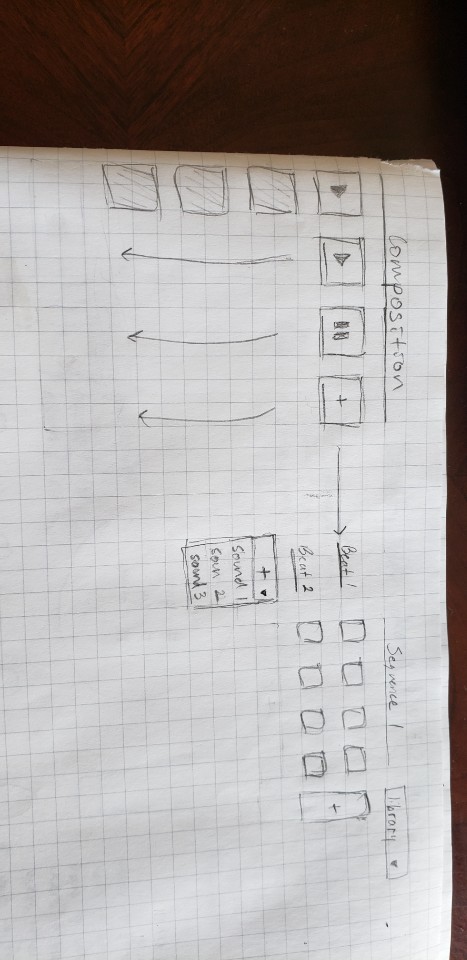 Composition
+
Sequence 1
library
Beat 1
+
Beat 2
+
sound 1
soun 2
sound 3